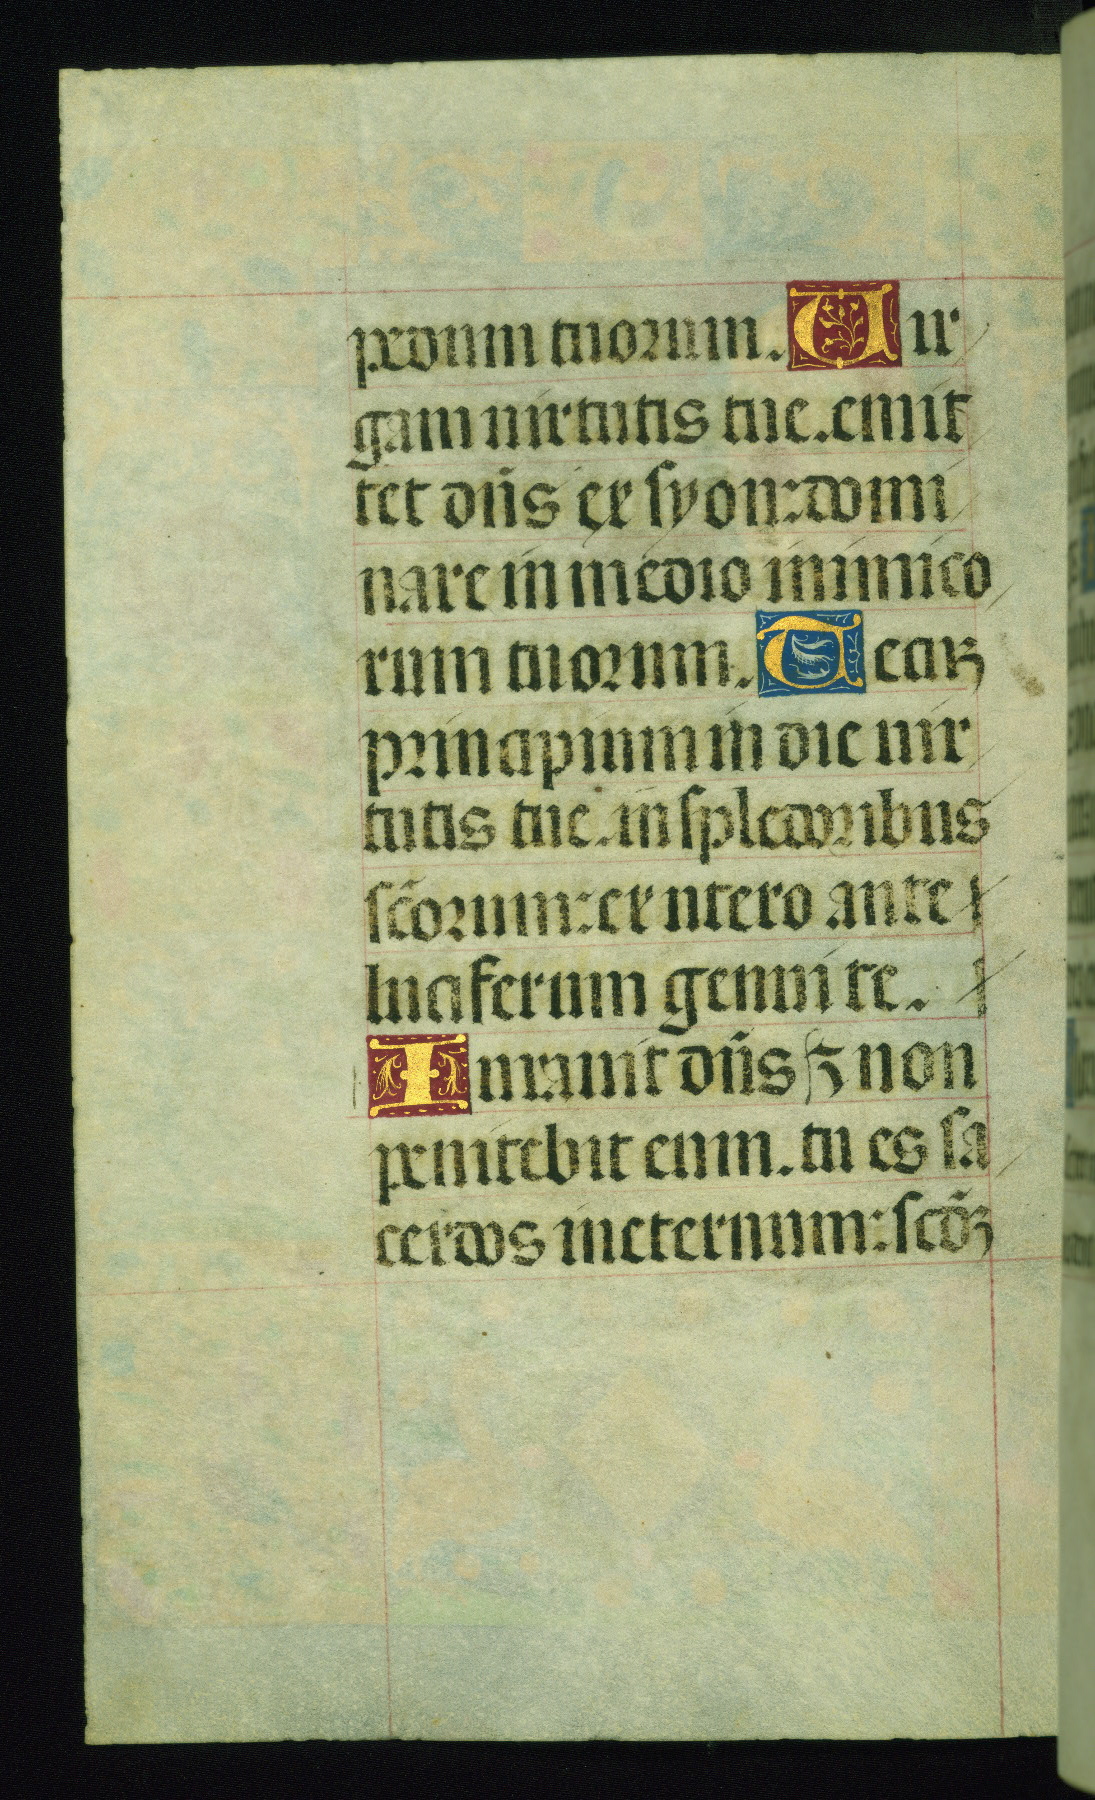 pedum tuorum. Uir
gam uirtutis tue. emit
tet dn̄s ex syon: domi
nare in medio inimico
rum tuorum. Tecuꝫ
principium in die uir
tutis tue. in splēdoribus
sc̄orum: ex utero ante
luciferum genui te.
Iurauit dn̄s ⁊ non
penitebit eum. tu es sa
cerdos ineternum: scd̄ꝫ